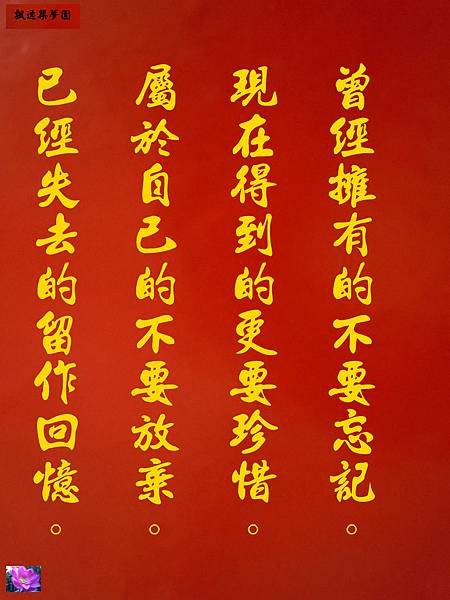 飄逸集夢園
曾經擁有的不要忘記。
現在得到的更要珍惜。
屬於自己的不要放棄。
已經失去的留作回憶。